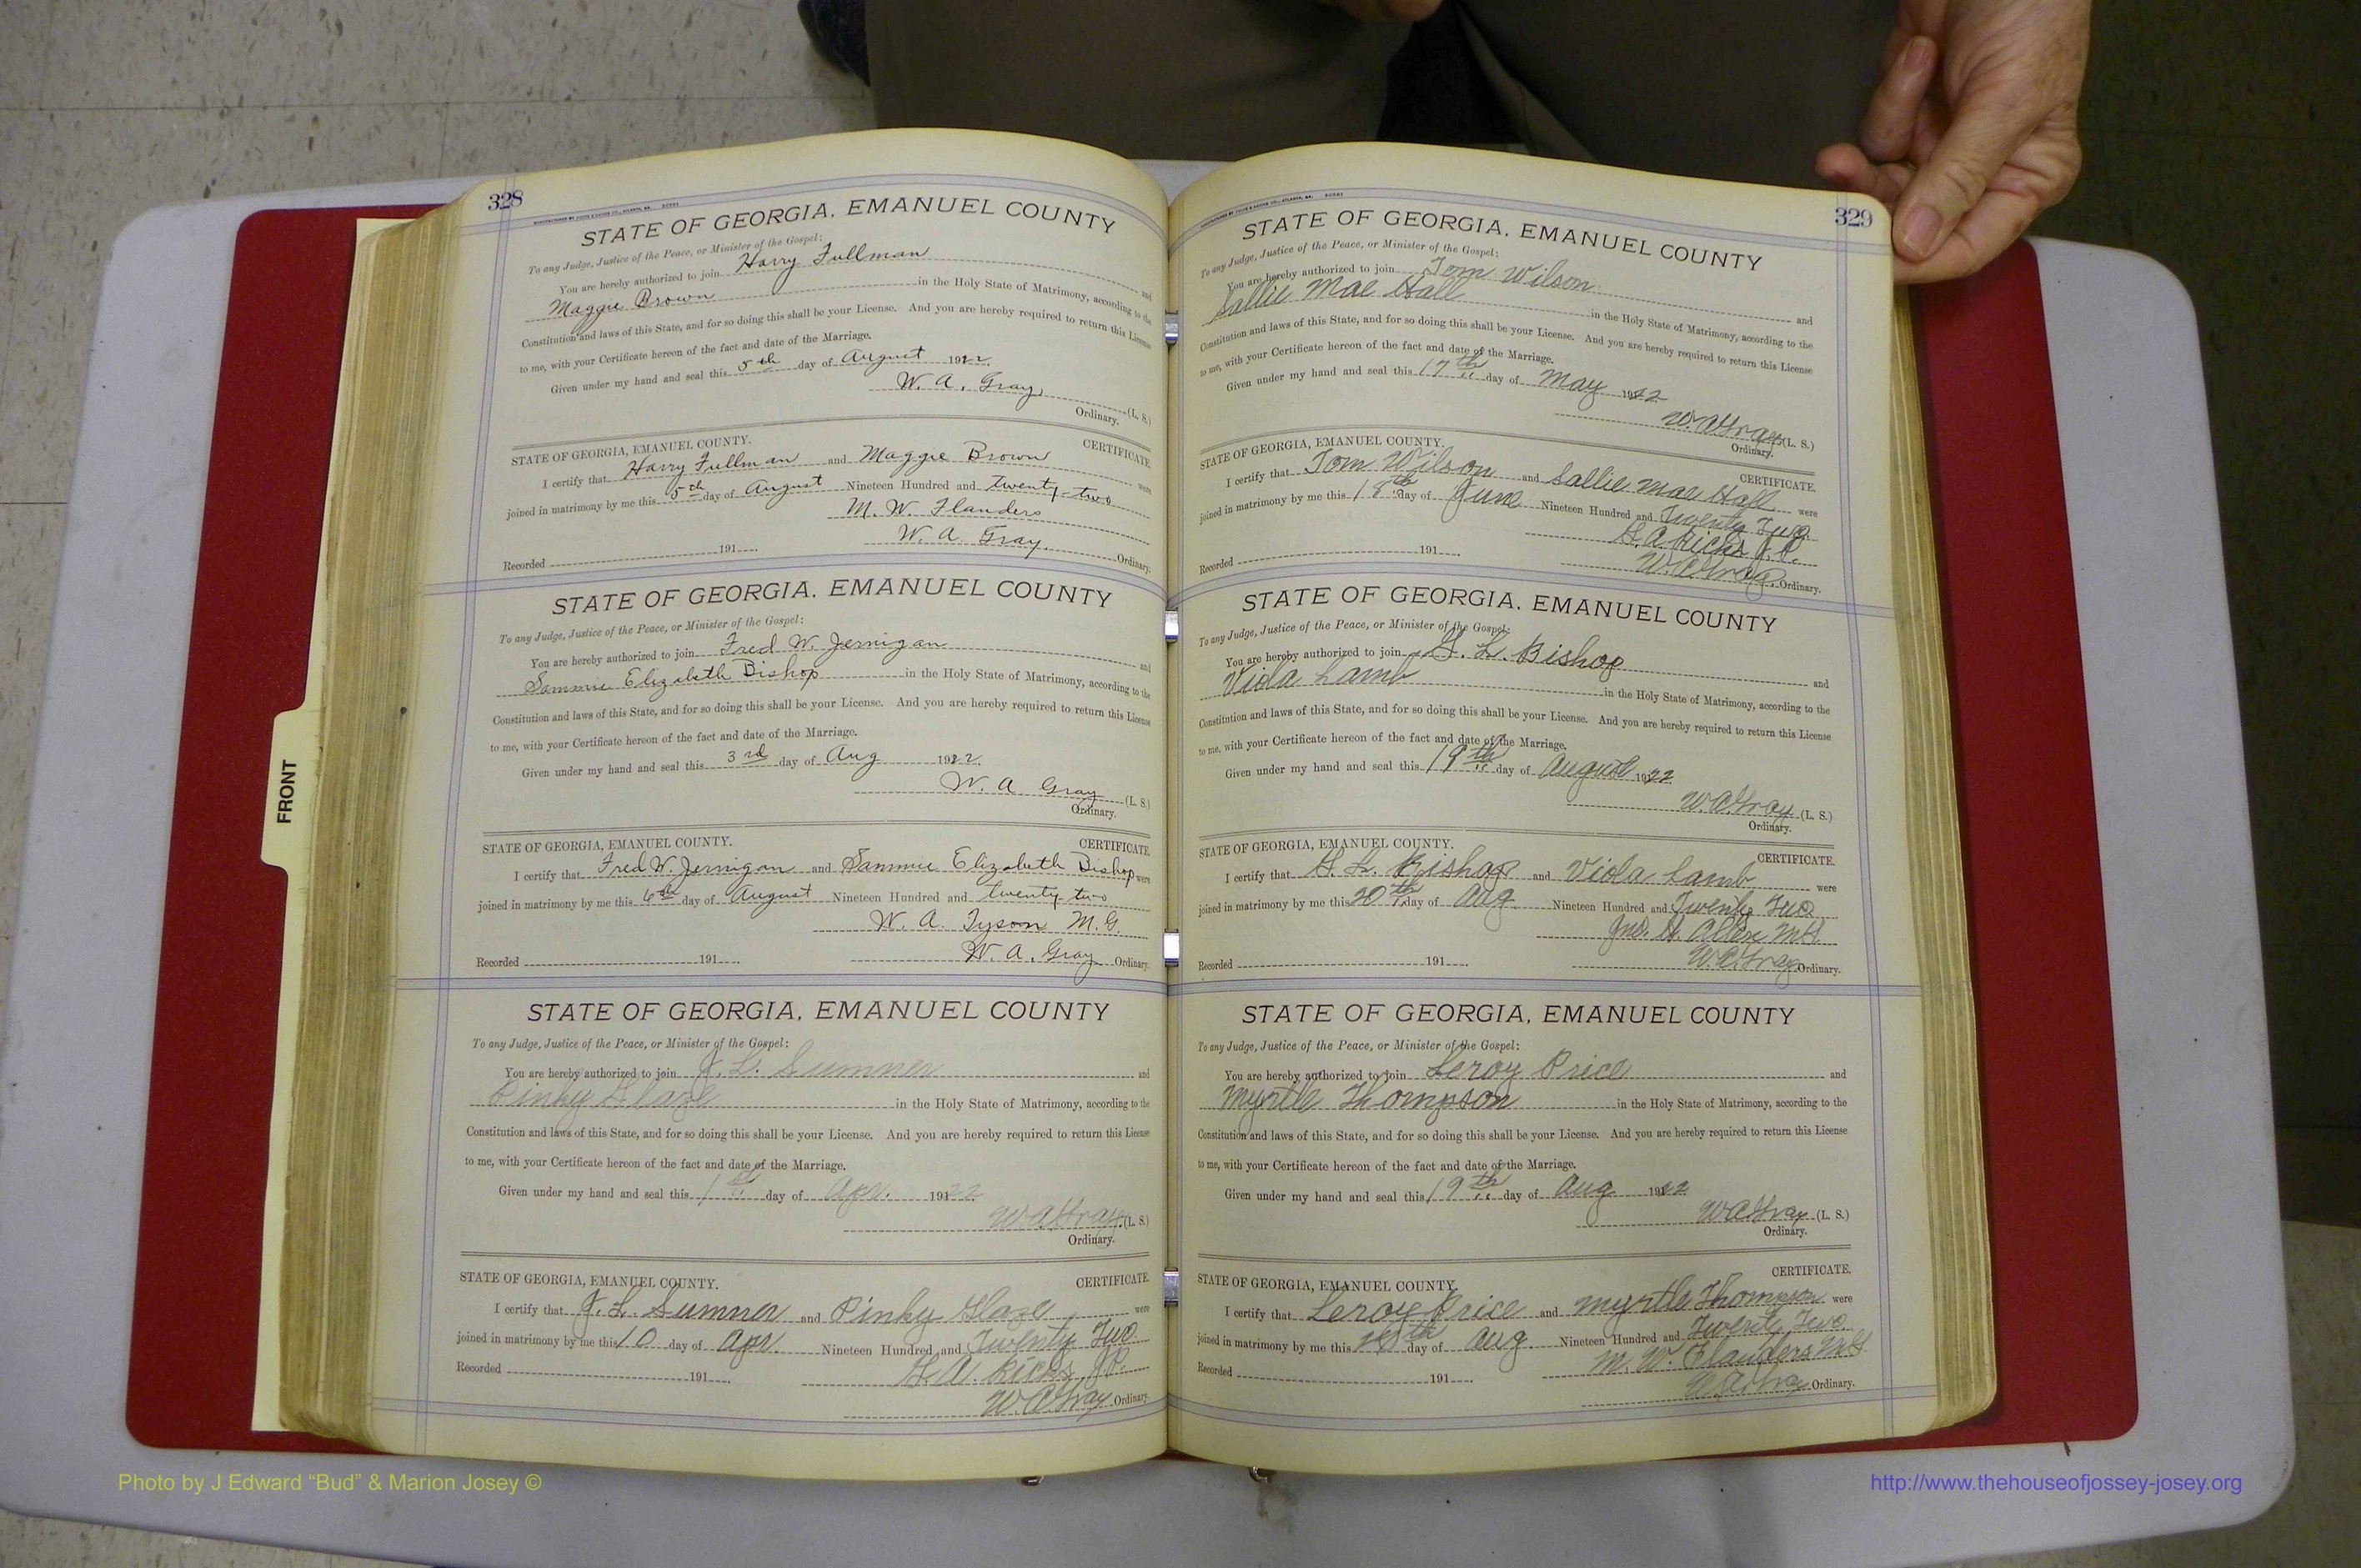 328
STATE OF GEORGIA, EMANUEL COUNTY
To any Judge, Justice of the Peace, or Minister of the Gospel:
You are hereby authorized to join Harry Fullman and
Maggie Brown in the Holy State of Matrimony, according to the
Constitution and laws of this State, and for so doing this shall be your License. And you are hereby required to return this License
to me, with your Certificate hereon of the fact and date of the Marriage.
Given under my hand and seal this 5th day of August 1922.
W. A. Gray (L. S.)
Ordinary.
STATE OF GEORGIA, EMANUEL COUNTY. CERTIFICATE
I certify that Harry Fullman and Maggie Brown were
joined in matrimony by me this 5th day of August Nineteen Hundred and twenty-two
M. W. Flanders
Recorded 191 W. A Gray. Ordinary.
STATE OF GEORGIA, EMANUEL COUNTY
To any Judge, Justice of the Peace, or Minister of the Gospel:
You are hereby authorized to join Fred W. Jernigan and
Sammie Elizabeth Bishop in the Holy State of Matrimony, according to the
Constitution and laws of this State, and for so doing this shall be your License. And you are hereby required to return this License
to me, with your Certificate hereon of the fact and date of the Marriage.
Given under my hand and seal this 3rd day of Aug 1922.
W. A Gray (L. S.)
Ordinary.
STATE OF GEORGIA, EMANUEL COUNTY. CERTIFICATE
I certify that Fred W. Jernigan and Sammie Elizabeth Bishop were
joined in matrimony by me this 6th day of August Nineteen Hundred and twenty-two
W. A. Tyson M.G.
Recorded 191 W. A. Gray Ordinary.
STATE OF GEORGIA, EMANUEL COUNTY
To any Judge, Justice of the Peace, or Minister of the Gospel:
You are hereby authorized to join J. L. Sumner and
Pinky Glaze in the Holy State of Matrimony, according to the
Constitution and laws of this State, and for so doing this shall be your License. And you are hereby required to return this License
to me, with your Certificate hereon of the fact and date of the Marriage.
Given under my hand and seal this 1st day of Apr. 19122
W A Gray (L. S.)
Ordinary.
STATE OF GEORGIA, EMANUEL COUNTY. CERTIFICATE
I certify that J. L. Sumner and Pinky Glaze were
joined in matrimony by me this 10 day of Apr. Nineteen Hundred and Twenty Two
Recorded 191 Ricks J.P.
W. A Gray Ordinary.
329
STATE OF GEORGIA, EMANUEL COUNTY
To any Judge, Justice of the Peace, or Minister of the Gospel:
You are hereby authorized to join Tom Wilson and
Sallie Mae Hall in the Holy State of Matrimony, according to the
Constitution and laws of this State, and for so doing this shall be your License. And you are hereby required to return this License
to me, with your Certificate hereon of the fact and date of the Marriage.
Given under my hand and seal this 17th day of May 1922
W. A Gray (L. S.)
Ordinary.
STATE OF GEORGIA, EMANUEL COUNTY. CERTIFICATE.
I certify that Tom Wilson and Sallie Mae Hall were
joined in matrimony by me this 18th day of June Nineteen Hundred and Twenty Two
Ricks J. P.
Recorded 191 W. A Gray Ordinary.
STATE OF GEORGIA, EMANUEL COUNTY
To any Judge, Justice of the Peace, or Minister of the Gospel:
You are hereby authorized to join L. Bishop and
Viola Lamb in the Holy State of Matrimony, according to the
Constitution and laws of this State, and for so doing this shall be your License. And you are hereby required to return this License
to me, with your Certificate hereon of the fact and date of the Marriage.
Given under my hand and seal this 19th day of August 1922
W. A Gray (L. S.)
Ordinary.
STATE OF GEORGIA, EMANUEL COUNTY. CERTIFICATE.
I certify that L. Bishop and Viola Lamb were
joined in matrimony by me this 20th day of Aug Nineteen Hundred and Twenty Two
Jno. Allen M.G.
Recorded 191 W. A Gray Ordinary.
STATE OF GEORGIA, EMANUEL COUNTY
To any Judge, Justice of the Peace, or Minister of the Gospel:
You are hereby authorized to join Leroy Price and
Myrtle Thompson in the Holy State of Matrimony, according to the
Constitution and laws of this State, and for so doing this shall be your License. And you are hereby required to return this License
to me, with your Certificate hereon of the fact and date of the Marriage.
Given under my hand and seal this 19th day of Aug 1922
W A Gray (L. S.)
Ordinary.
STATE OF GEORGIA, EMANUEL COUNTY. CERTIFICATE.
I certify that Leroy Price and Myrtle Thompson were
joined in matrimony by me this day of Aug. Nineteen Hundred and Twenty Two
M. W. Flanders M.G.
Recorded 191 W. A Gray Ordinary.
FRONT
Photo by J Edward “Bud” & Marion Josey ©
http://www.thehouseofjossey-josey.org